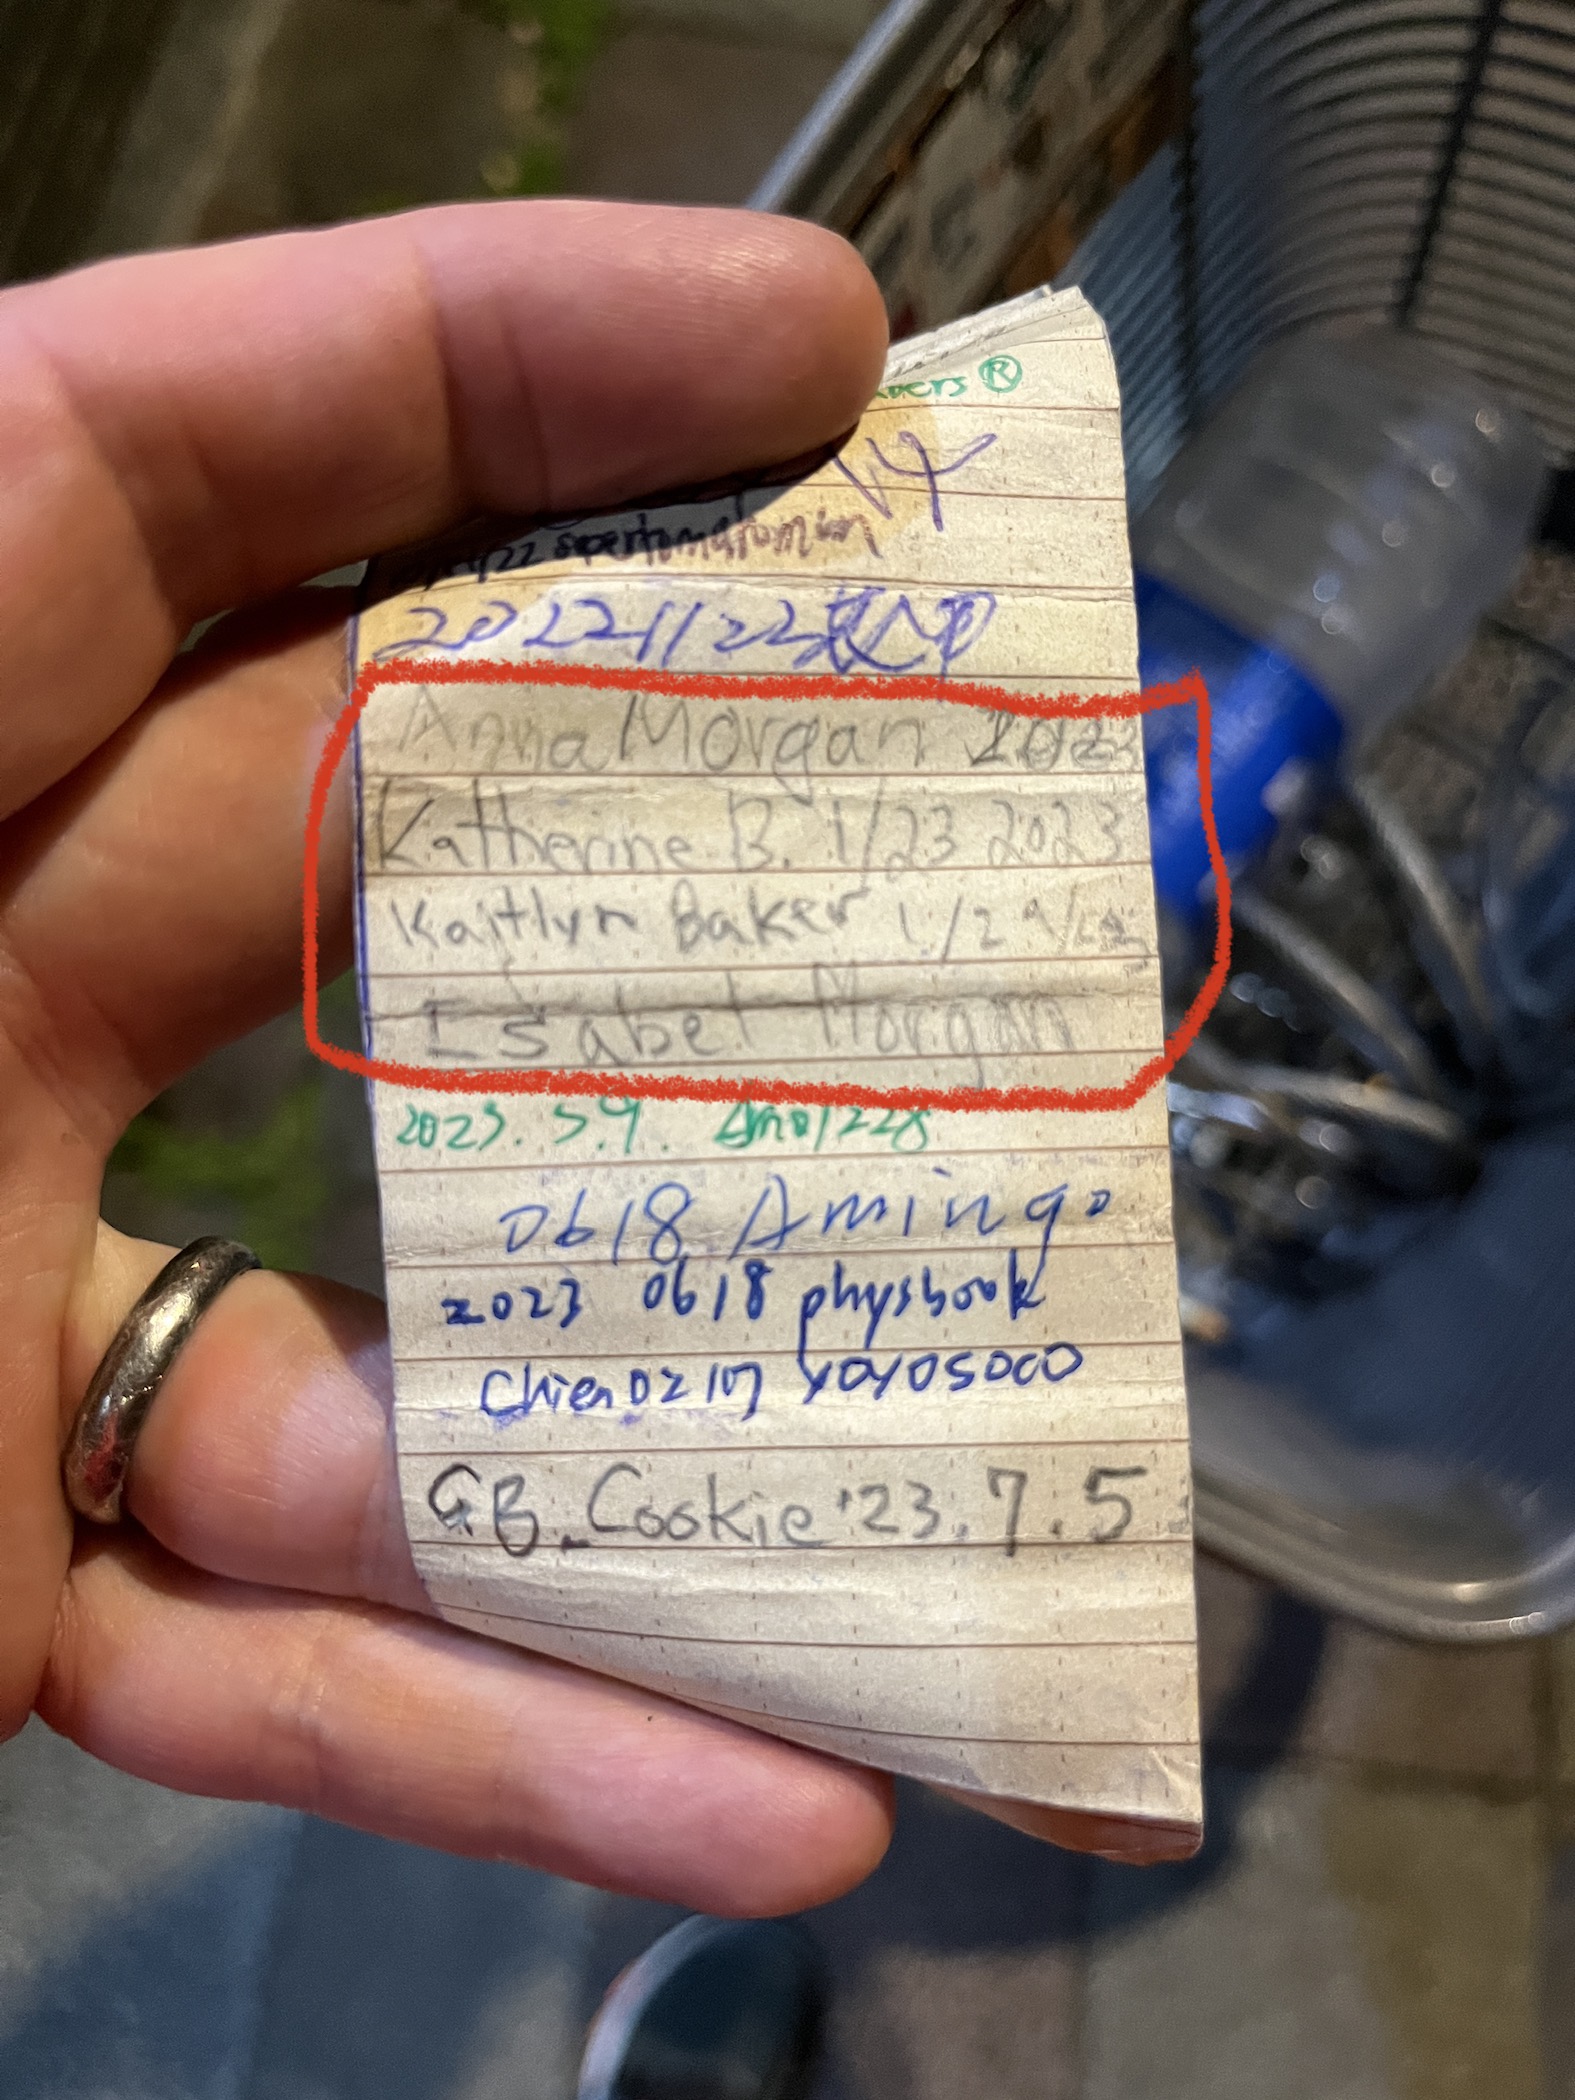 ®
supertomatoman
2022 11/22
Anna Morgan 2023
Katherine B. 1/23 2023
Kaitlyn Baker 1/2
Isabel Morgan
2023. 5.9.
0618 Amingo
2023 0618 physbook
Chien0217 yoyo5000
GB_Cookie '23.7.5